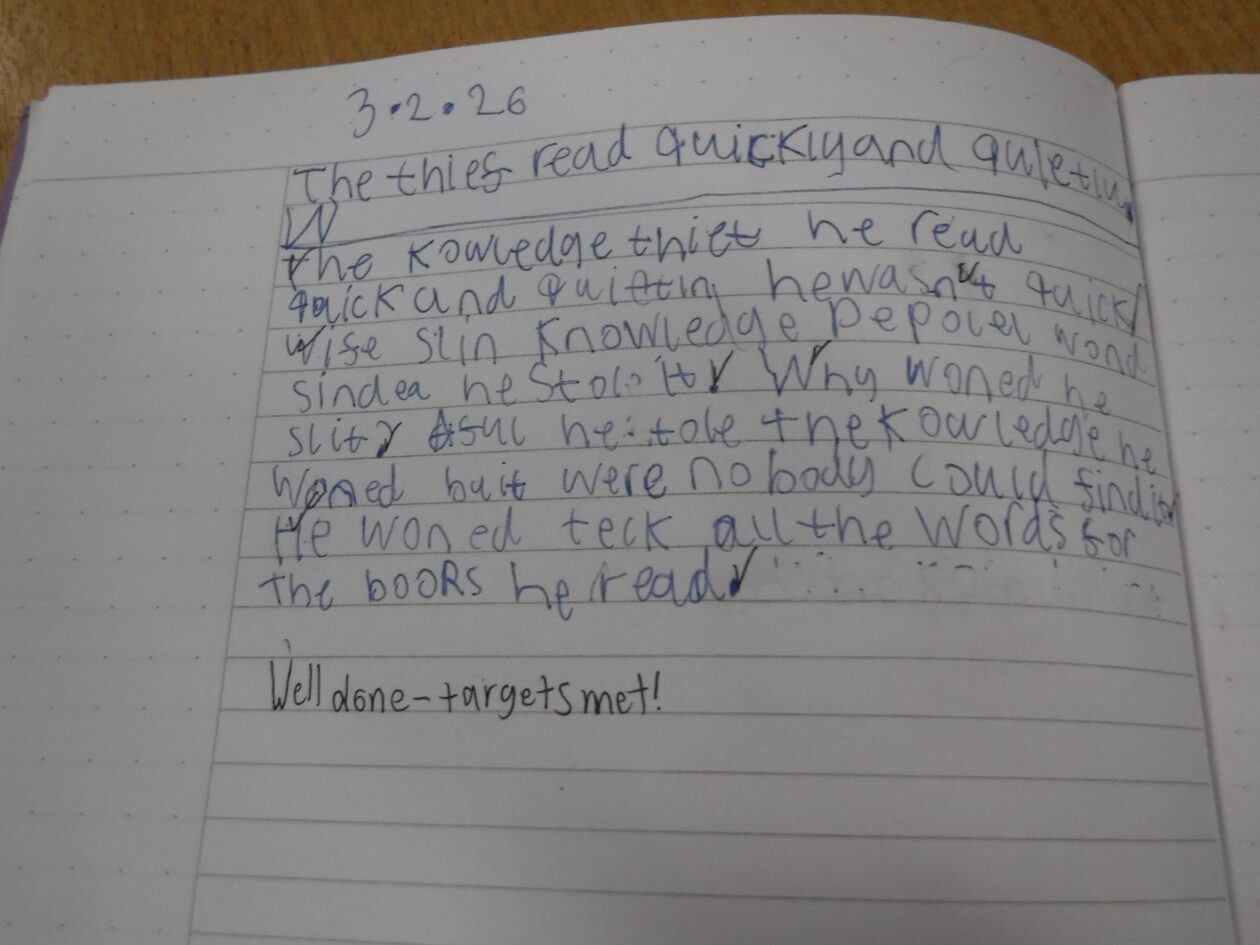 3.2.26
The thief read quickly and quietly
W
the kowledge thief he read
quick and he wasn't quick
Wise Slin Knowledge Pepolel wond
sindea he Stole it Why woned he
slit he stole the kowledge he
woned buit were nobody could find it
He woned teck all the words for
the books he read
Well done - targets met!